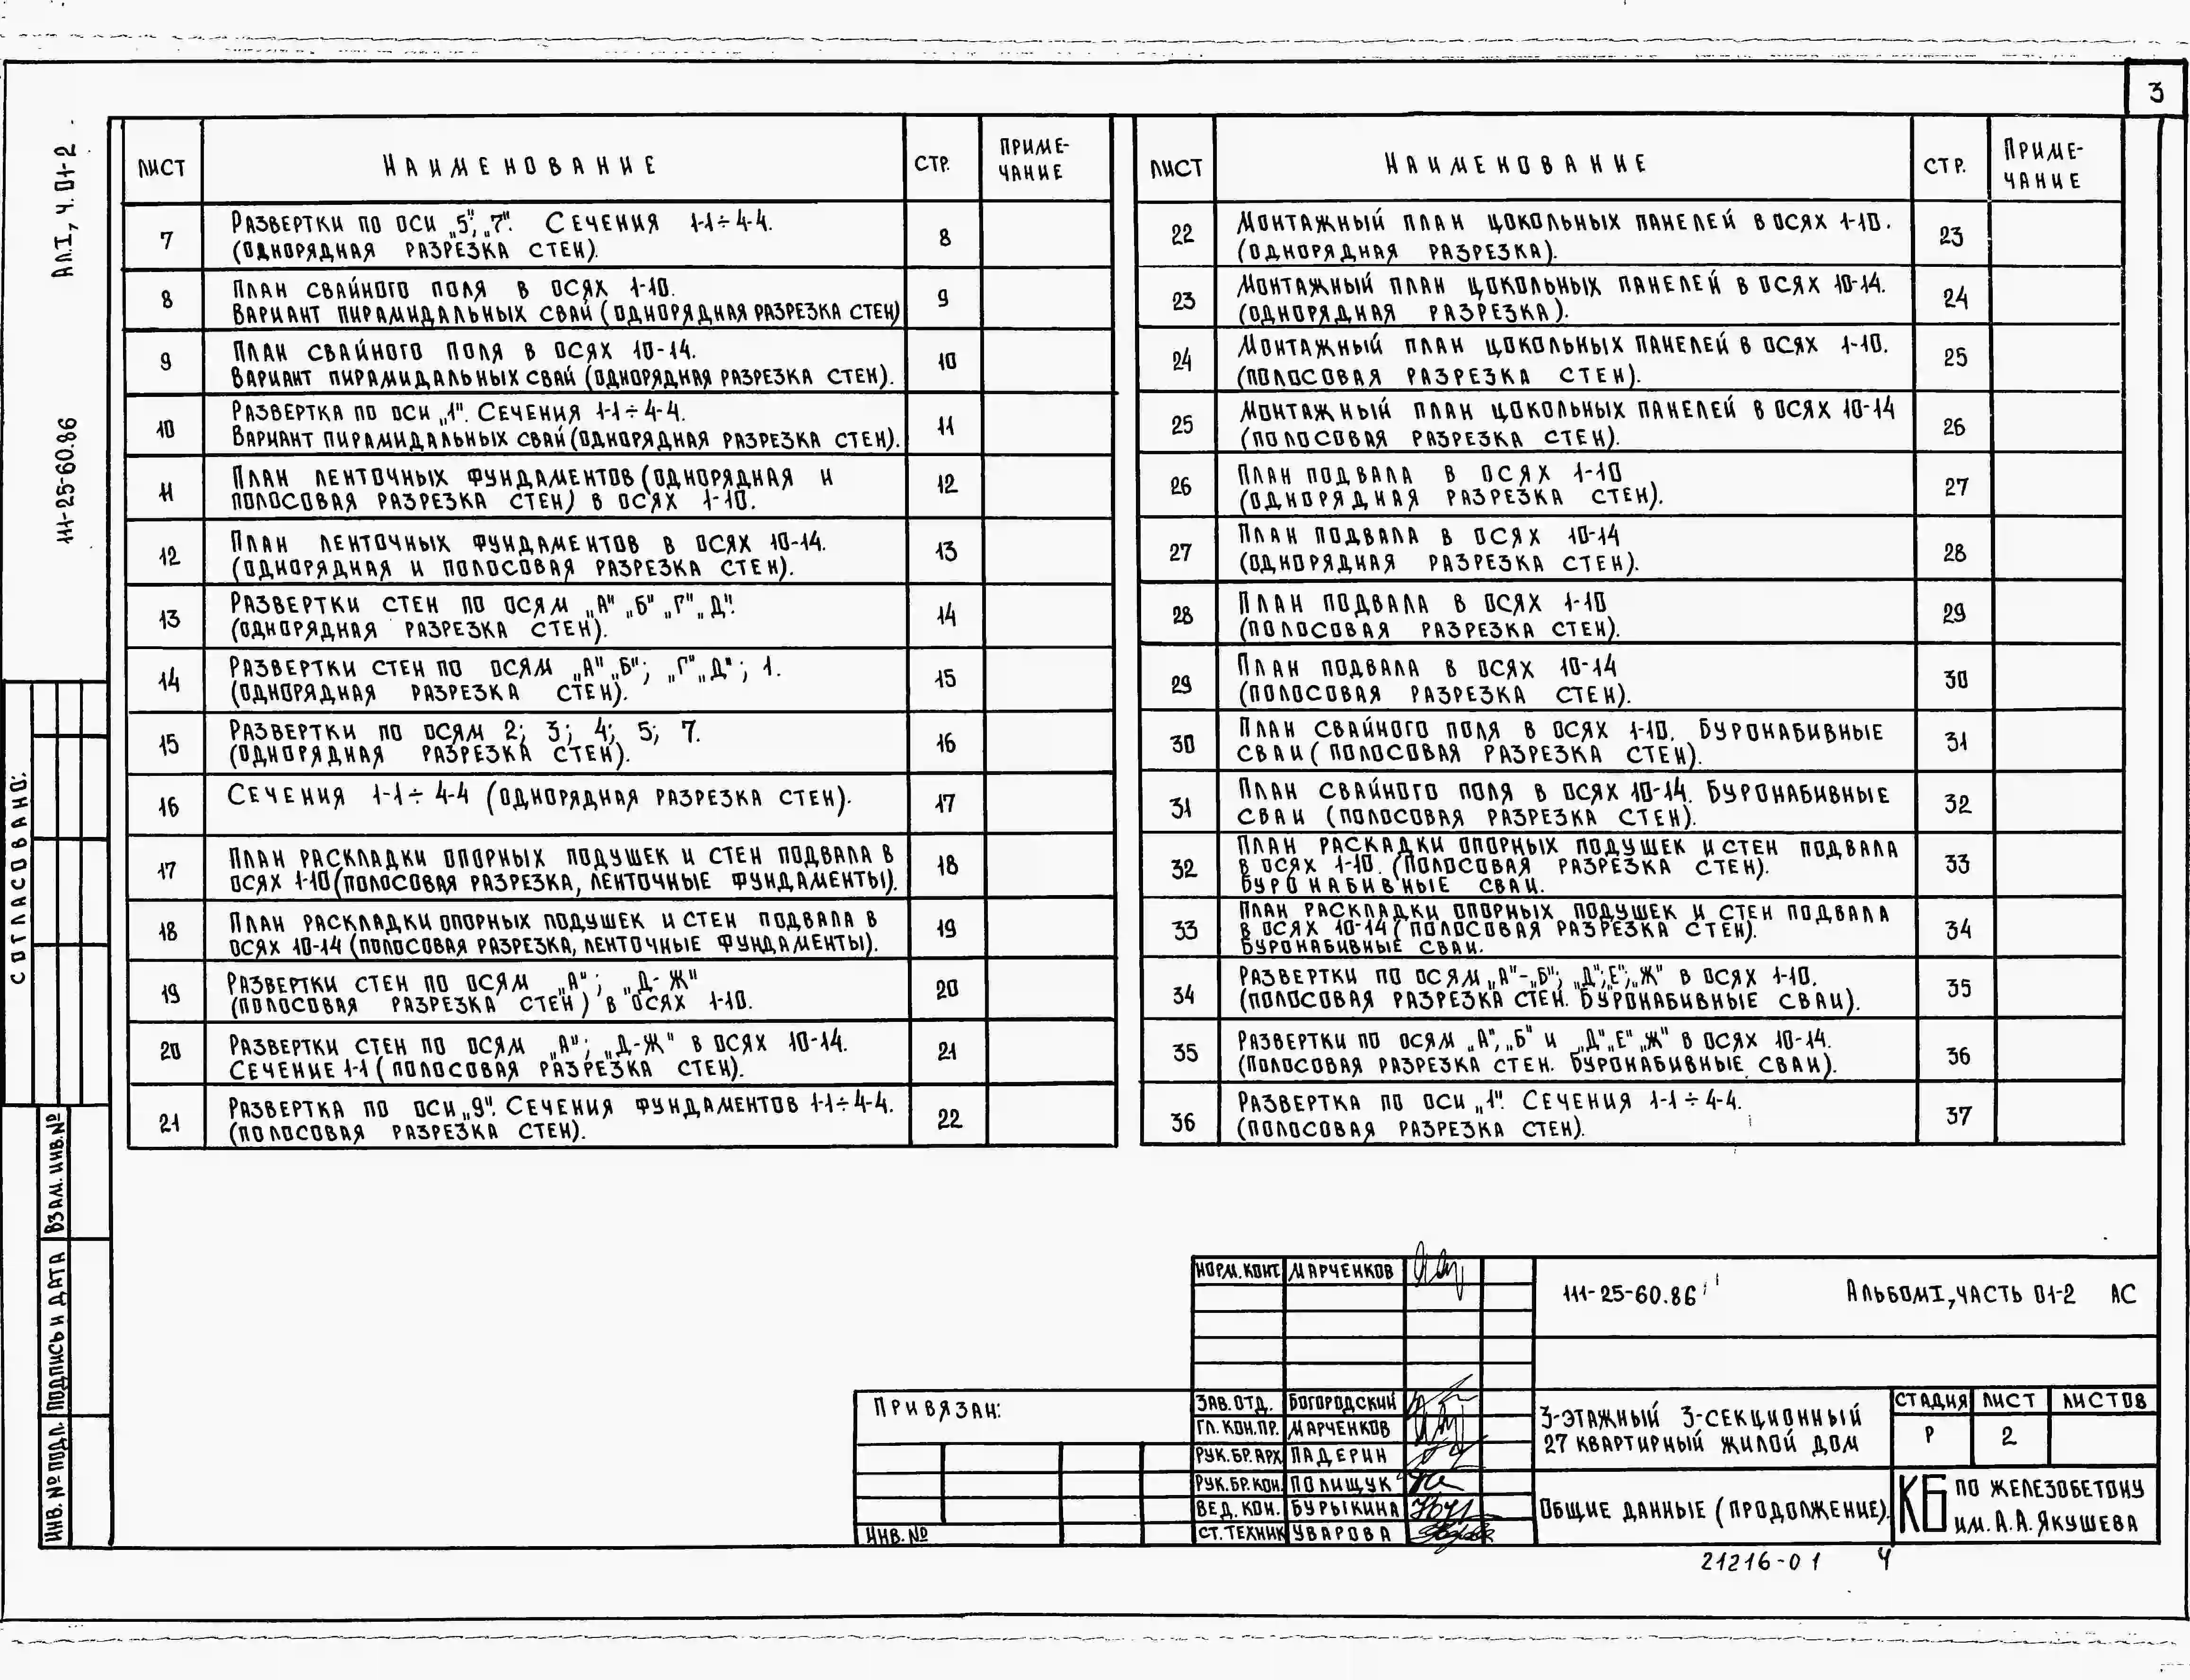 3
Ал.I, ч.01-2
111-25-60.86
СОГЛАСОВАНО:
ВЗАМ. ИНВ.№
ПОДПИСЬ И ДАТА
ИНВ. № ПОДЛ.
ЛИСТ НАИМЕНОВАНИЕ СТР. ПРИМЕ-
ЧАНИЕ
7 РАЗВЕРТКИ ПО ОСИ „5", „7". СЕЧЕНИЯ 1-1÷4-4. 8
(ОДНОРЯДНАЯ РАЗРЕЗКА СТЕН).
8 ПЛАН СВАЙНОГО ПОЛЯ В ОСЯХ 1-10. 9
ВАРИАНТ ПИРАМИДАЛЬНЫХ СВАЙ (ОДНОРЯДНАЯ РАЗРЕЗКА СТЕН)
9 ПЛАН СВАЙНОГО ПОЛЯ В ОСЯХ 10-14. 10
ВАРИАНТ ПИРАМИДАЛЬНЫХ СВАЙ (ОДНОРЯДНАЯ РАЗРЕЗКА СТЕН).
10 РАЗВЕРТКА ПО ОСИ „1". СЕЧЕНИЯ 1-1÷4-4. 11
ВАРИАНТ ПИРАМИДАЛЬНЫХ СВАЙ (ОДНОРЯДНАЯ РАЗРЕЗКА СТЕН).
11 ПЛАН ЛЕНТОЧНЫХ ФУНДАМЕНТОВ (ОДНОРЯДНАЯ И 12
ПОЛОСОВАЯ РАЗРЕЗКА СТЕН) В ОСЯХ 1-10.
12 ПЛАН ЛЕНТОЧНЫХ ФУНДАМЕНТОВ В ОСЯХ 10-14. 13
(ОДНОРЯДНАЯ И ПОЛОСОВАЯ РАЗРЕЗКА СТЕН).
13 РАЗВЕРТКИ СТЕН ПО ОСЯМ „А" „Б" „Г" „Д". 14
(ОДНОРЯДНАЯ РАЗРЕЗКА СТЕН).
14 РАЗВЕРТКИ СТЕН ПО ОСЯМ „А" „Б"; „Г" „Д"; 1. 15
(ОДНОРЯДНАЯ РАЗРЕЗКА СТЕН).
15 РАЗВЕРТКИ ПО ОСЯМ 2; 3; 4; 5; 7. 16
(ОДНОРЯДНАЯ РАЗРЕЗКА СТЕН).
16 СЕЧЕНИЯ 1-1÷4-4 (ОДНОРЯДНАЯ РАЗРЕЗКА СТЕН). 17
17 ПЛАН РАСКЛАДКИ ОПОРНЫХ ПОДУШЕК И СТЕН ПОДВАЛА В 18
ОСЯХ 1-10 (ПОЛОСОВАЯ РАЗРЕЗКА, ЛЕНТОЧНЫЕ ФУНДАМЕНТЫ).
18 ПЛАН РАСКЛАДКИ ОПОРНЫХ ПОДУШЕК И СТЕН ПОДВАЛА В 19
ОСЯХ 10-14 (ПОЛОСОВАЯ РАЗРЕЗКА, ЛЕНТОЧНЫЕ ФУНДАМЕНТЫ).
19 РАЗВЕРТКИ СТЕН ПО ОСЯМ „А"; „Д-Ж" 20
(ПОЛОСОВАЯ РАЗРЕЗКА СТЕН) В ОСЯХ 1-10.
20 РАЗВЕРТКИ СТЕН ПО ОСЯМ „А"; „Д-Ж" В ОСЯХ 10-14. 21
СЕЧЕНИЕ 1-1 (ПОЛОСОВАЯ РАЗРЕЗКА СТЕН).
21 РАЗВЕРТКА ПО ОСИ „9". СЕЧЕНИЯ ФУНДАМЕНТОВ 1-1÷4-4. 22
(ПОЛОСОВАЯ РАЗРЕЗКА СТЕН).
ЛИСТ НАИМЕНОВАНИЕ СТР. ПРИМЕ-
ЧАНИЕ
22 МОНТАЖНЫЙ ПЛАН ЦОКОЛЬНЫХ ПАНЕЛЕЙ В ОСЯХ 1-10. 23
(ОДНОРЯДНАЯ РАЗРЕЗКА).
23 МОНТАЖНЫЙ ПЛАН ЦОКОЛЬНЫХ ПАНЕЛЕЙ В ОСЯХ 10-14. 24
(ОДНОРЯДНАЯ РАЗРЕЗКА).
24 МОНТАЖНЫЙ ПЛАН ЦОКОЛЬНЫХ ПАНЕЛЕЙ В ОСЯХ 1-10. 25
(ПОЛОСОВАЯ РАЗРЕЗКА СТЕН).
25 МОНТАЖНЫЙ ПЛАН ЦОКОЛЬНЫХ ПАНЕЛЕЙ В ОСЯХ 10-14 26
(ПОЛОСОВАЯ РАЗРЕЗКА СТЕН).
26 ПЛАН ПОДВАЛА В ОСЯХ 1-10 27
(ОДНОРЯДНАЯ РАЗРЕЗКА СТЕН).
27 ПЛАН ПОДВАЛА В ОСЯХ 10-14 28
(ОДНОРЯДНАЯ РАЗРЕЗКА СТЕН).
28 ПЛАН ПОДВАЛА В ОСЯХ 1-10 29
(ПОЛОСОВАЯ РАЗРЕЗКА СТЕН).
29 ПЛАН ПОДВАЛА В ОСЯХ 10-14 30
(ПОЛОСОВАЯ РАЗРЕЗКА СТЕН).
30 ПЛАН СВАЙНОГО ПОЛЯ В ОСЯХ 1-10. БУРОНАБИВНЫЕ 31
СВАИ (ПОЛОСОВАЯ РАЗРЕЗКА СТЕН).
31 ПЛАН СВАЙНОГО ПОЛЯ В ОСЯХ 10-14. БУРОНАБИВНЫЕ 32
СВАИ (ПОЛОСОВАЯ РАЗРЕЗКА СТЕН).
32 ПЛАН РАСКАДКИ ОПОРНЫХ ПОДУШЕК И СТЕН ПОДВАЛА 33
В ОСЯХ 1-10. (ПОЛОСОВАЯ РАЗРЕЗКА СТЕН).
БУРОНАБИВНЫЕ СВАИ.
33 ПЛАН РАСКЛАДКИ ОПОРНЫХ ПОДУШЕК И СТЕН ПОДВАЛА 34
В ОСЯХ 10-14 (ПОЛОСОВАЯ РАЗРЕЗКА СТЕН).
БУРОНАБИВНЫЕ СВАИ.
34 РАЗВЕРТКИ ПО ОСЯМ „А"-„Б"; „Д"; Е"; „Ж" В ОСЯХ 1-10. 35
(ПОЛОСОВАЯ РАЗРЕЗКА СТЕН. БУРОНАБИВНЫЕ СВАИ).
35 РАЗВЕРТКИ ПО ОСЯМ „А", „Б" И „Д" „Е" „Ж" В ОСЯХ 10-14. 36
(ПОЛОСОВАЯ РАЗРЕЗКА СТЕН. БУРОНАБИВНЫЕ СВАИ).
36 РАЗВЕРТКА ПО ОСИ „1". СЕЧЕНИЯ 1-1÷4-4. 37
(ПОЛОСОВАЯ РАЗРЕЗКА СТЕН).
НОРМ. КОНТ. МАРЧЕНКОВ
111-25-60.86 АЛЬБОМ I, ЧАСТЬ 01-2 АС
ПРИВЯЗАН:
ИНВ. №
ЗАВ. ОТД. БОГОРОДСКИЙ
ГЛ. КОН.ПР. МАРЧЕНКОВ
РУК. БР. АРХ. ПАДЕРИН
РУК. БР. КОН. ПОЛИЩУК
ВЕД. КОН. БУРЫКИНА
СТ. ТЕХНИК УВАРОВА
3-ЭТАЖНЫЙ 3-СЕКЦИОННЫЙ
27 КВАРТИРНЫЙ ЖИЛОЙ ДОМ
СТАДИЯ ЛИСТ ЛИСТОВ
Р 2
ОБЩИЕ ДАННЫЕ (ПРОДОЛЖЕНИЕ).
КБ ПО ЖЕЛЕЗОБЕТОНУ
ИМ. А.А. ЯКУШЕВА
21216-01 4